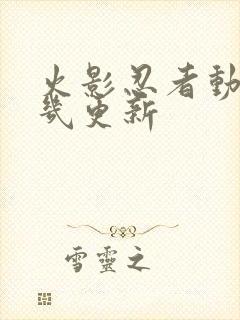 火影忍者動
幾更新
雪靈之